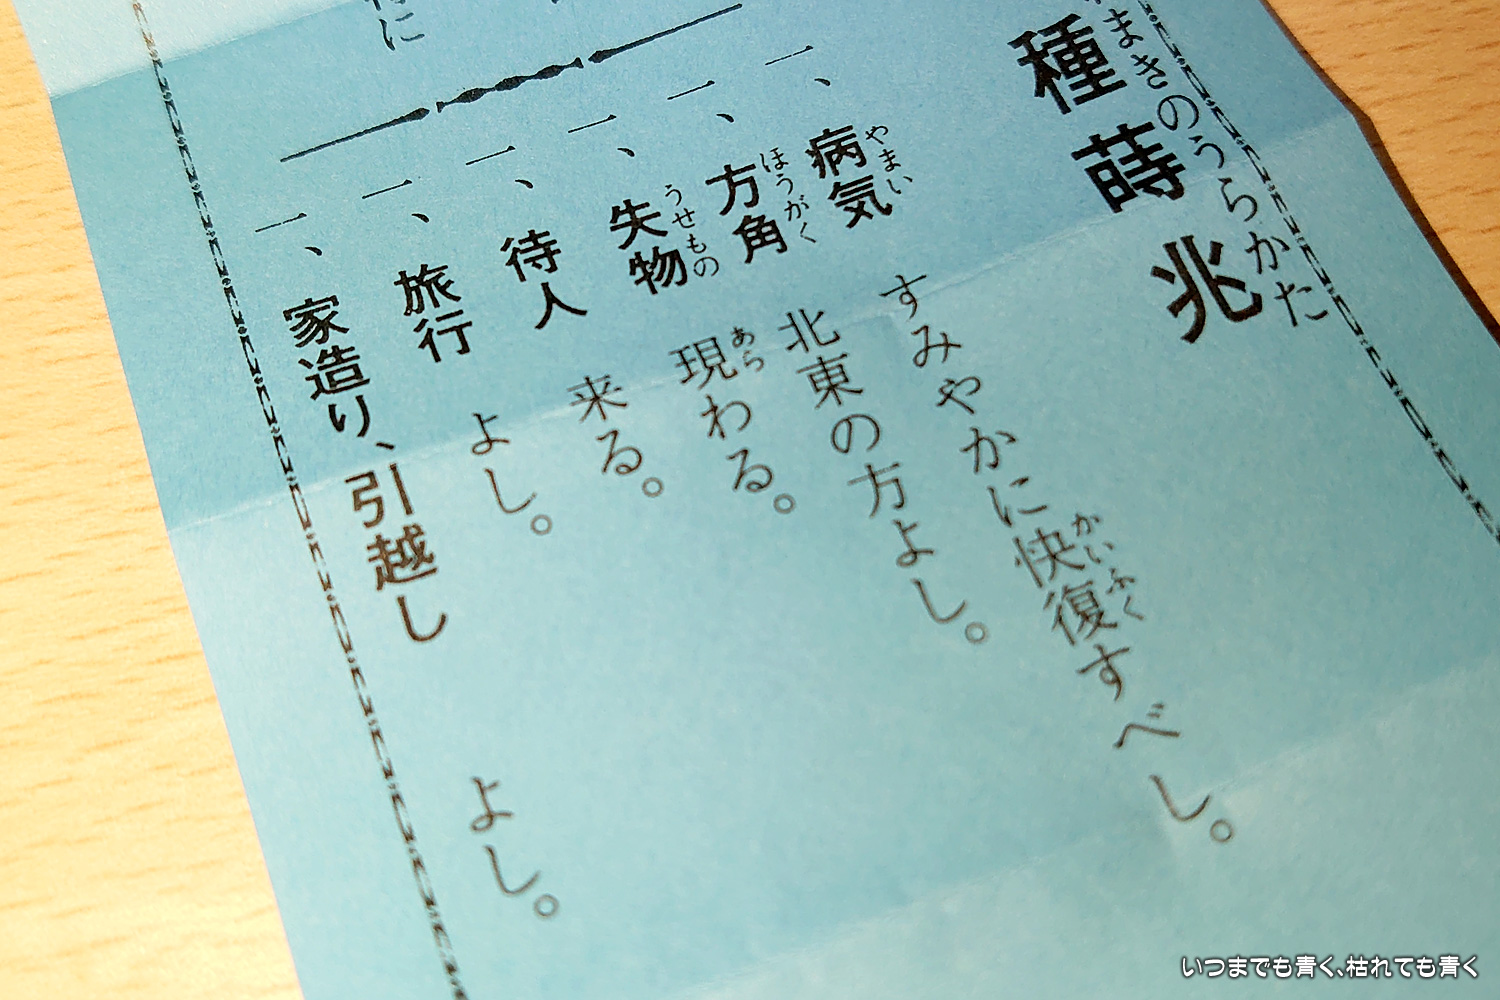 種蒔兆
まきのうらかた
一、病気 すみやかに快復すべし。
やまい
かいふく
一、方角 北東の方よし。
ほうがく
一、失物 現わる。
うせもの
あら
一、待人 来る。
一、旅行 よし。
一、家造り、引越し よし。
に
いつまでも青く、枯れても青く